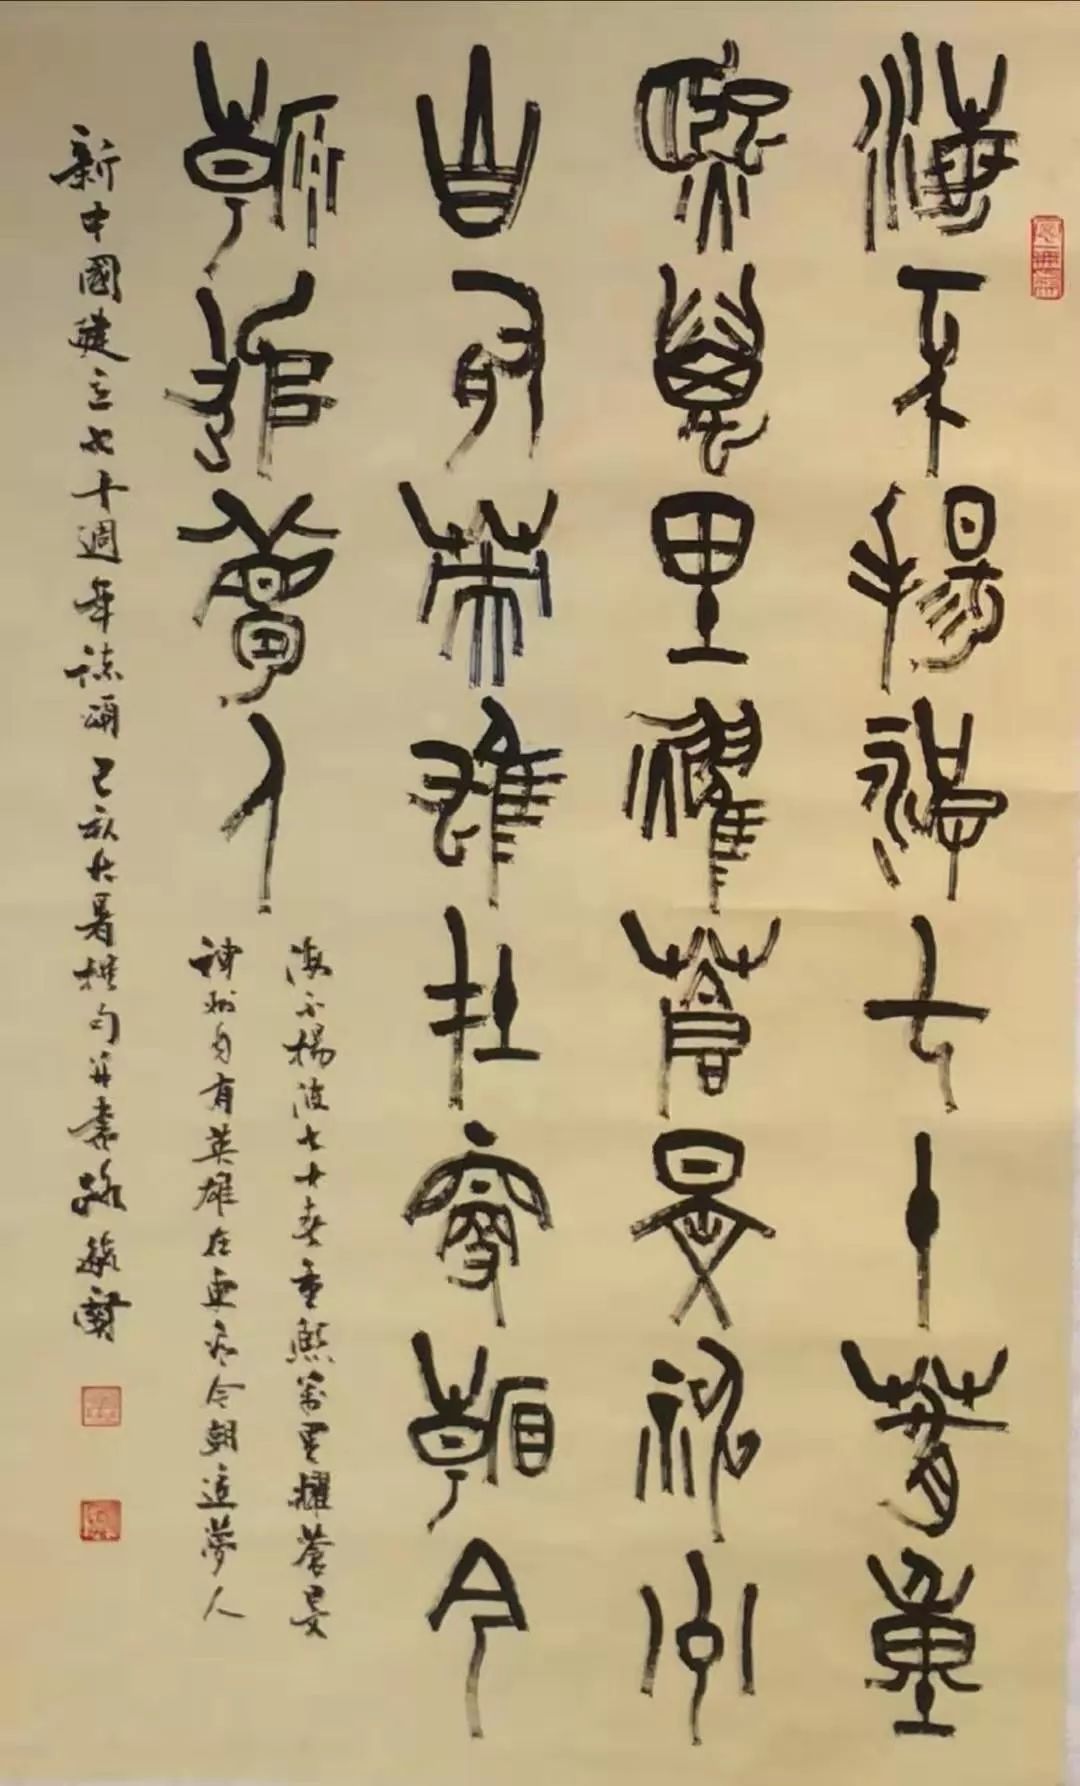 海不揚波七十春重
熙萬里耀蒼旻神州
自有英雄在今
朝追夢人
海不揚波七十春重熙萬里耀蒼旻
神州自有英雄在今朝追夢人
新中國建立七十週年誌頌己亥大暑撰句并書路毓賢